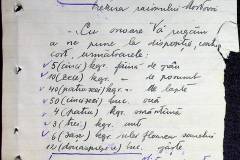 raionului Moldova
-Cu onoare Vă rugăm
a ne pune la dispoziție, contra
cost, următoarele
5 (cinci) kgr. făină de grâu
10 (zece) kgr. - de porumb
40 (patruzeci) kgr. - lapte
50 (cincizeci) buc. ouă
4 (patru) kgr. smântână
3 (trei) kgr. unt
6 (șase) kgr. ulei floarea soarelui
12 (douăsprezece) buc. găște